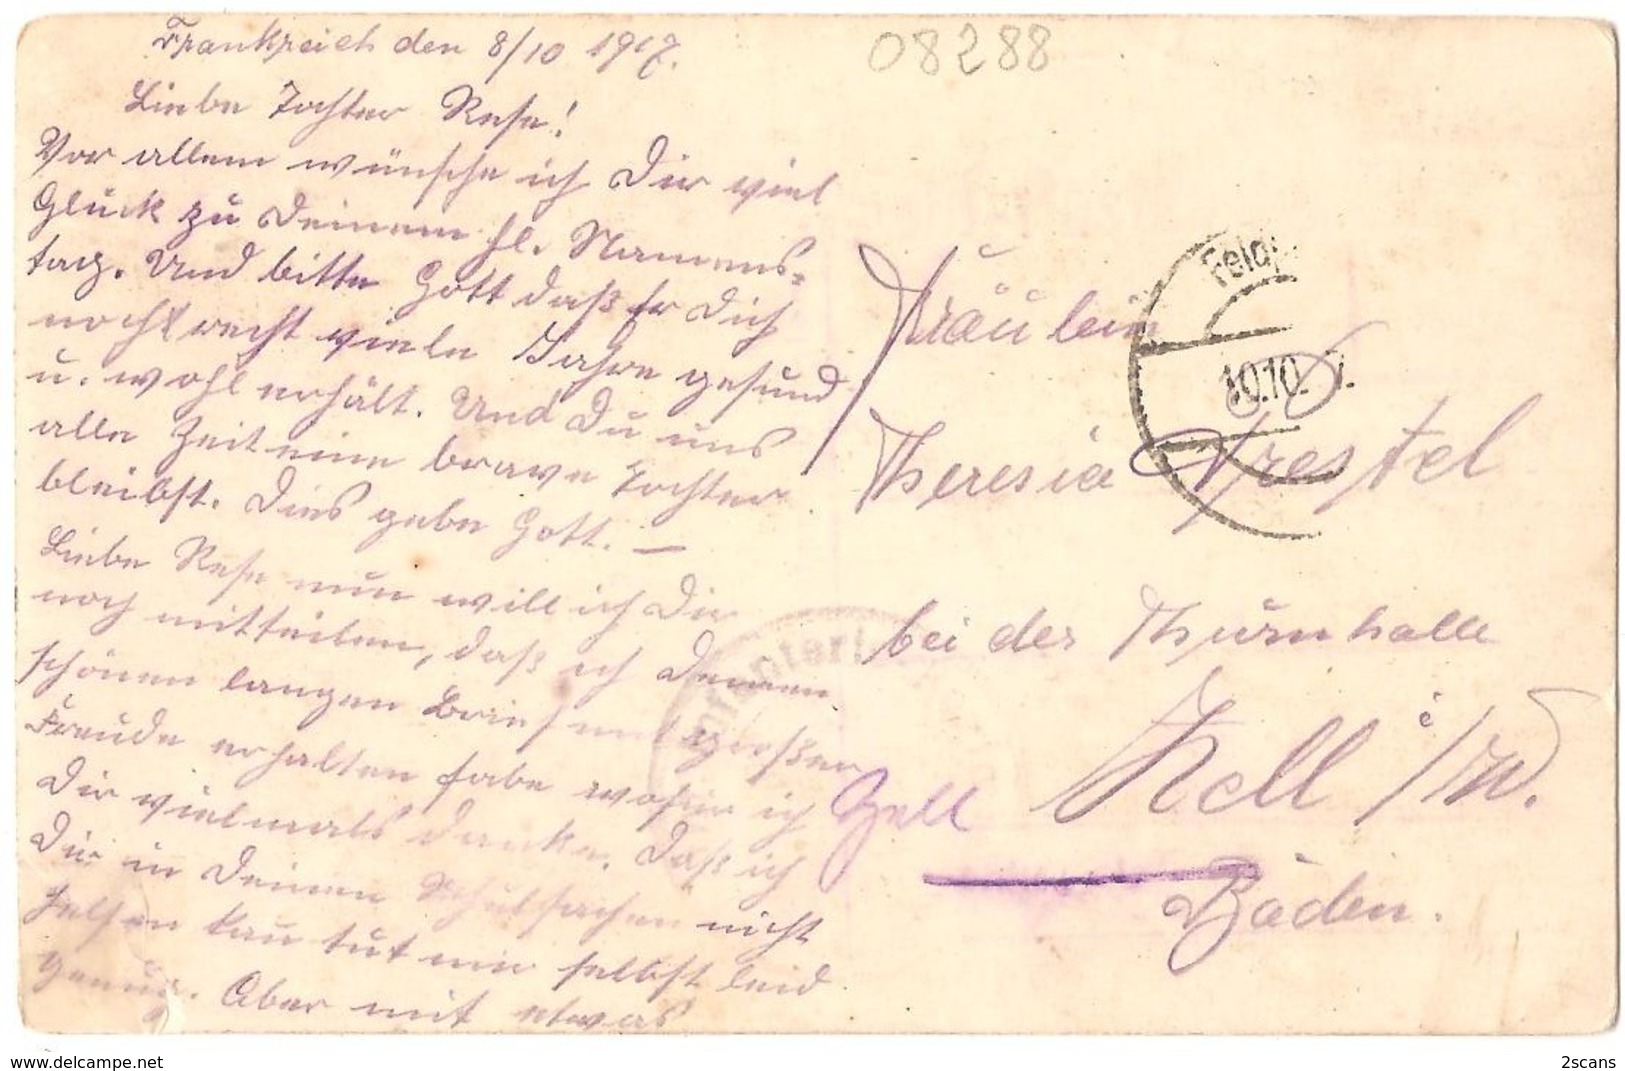 08288
Frankreich den 8/10 1917.
Liebe Tochter Rese!
Vor allem wünsche ich Dir viel
Glück zu Deinem hl. Namens-
tag. Und bitte Gott daß Er Dich
noch recht viele Jahre gesund
u. wohl erhält. Und Du uns
alle Zeit eine brave Tochter
bleibst. Dies gebe Gott. —
Liebe Rese nun will ich Dir
noch mitteilen, daß ich Deinen
schönen langen Brief mit großer
Freude erhalten habe wofür ich
Dir vielmals danke. Daß ich
Dir in Deinen Schulsachen nicht
helfen kan tut mir selbst leid
genug. Aber mit etwas
Feldp
10.10. 7.
Infanteri
Fräulein
Theresia Trestel
bei der Thurnhalle
Zell Zell i/W.
Baden.
www.delcampe.net
2scans